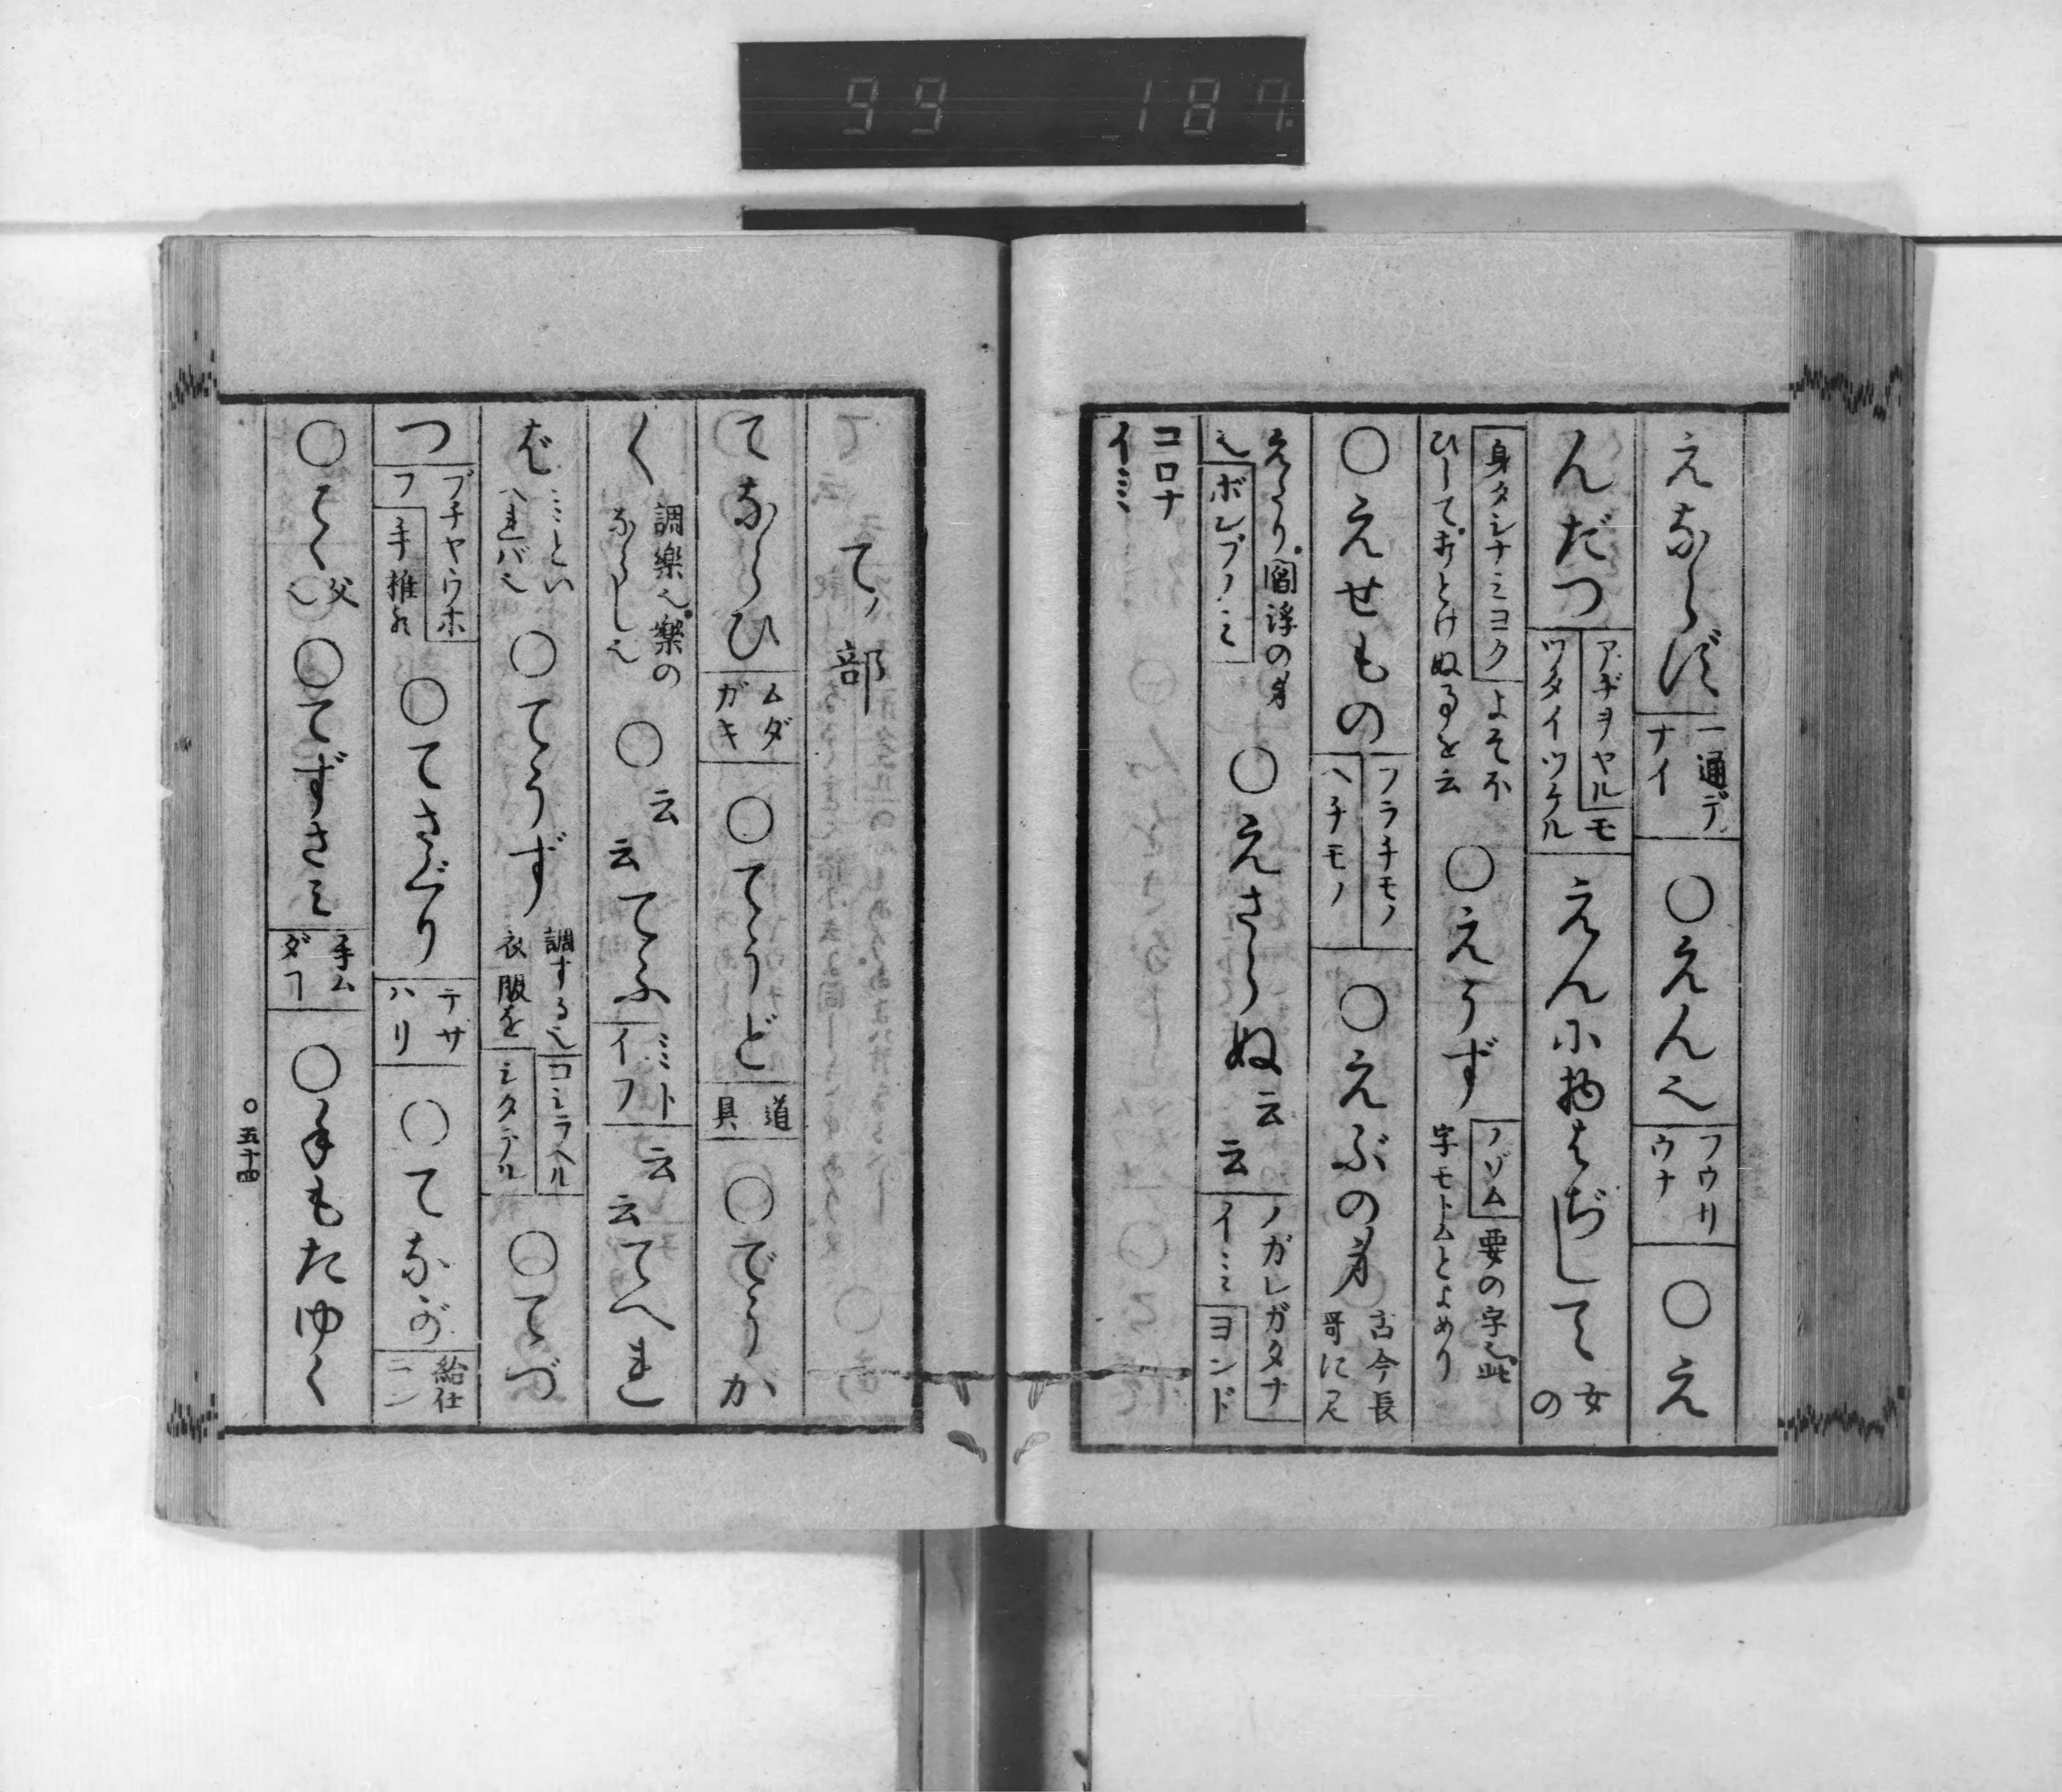 99 187
えならず 一通デナイ ○えんに フウリウナ ○え
んだつ アヂヲヤル モツタイツケル えん小物はぢして 女の
身タシナミヨク よそほひしておとけぬるを云 ○えうず ノゾム 要の字也此字モトムとよめり
○えせもの フラチモノ ヘチモノ ○えぶの身 古今長哥に見
えたり。閻浮の身也 ボレブノミ ○えさらぬ云云 ノガレガタナイミ ヨンド
コロナイミ
て ノ 部
てならひ ムダガキ ○てうど 道具 ○でうが
く 調楽也。楽のならし也 ○云云てふ ミトイフ 云云てへれ
ば ミといへればヘ也 ○てうず 調する也 コシラヘル 衣服を シタテル ○てづ
つ ブチヤウホフ 手推 ○てさぐり テサハリ ○てなが 給仕ニン
○てゝ 父也 ○てずさみ 手ムダ ○手もたゆく
○五十四